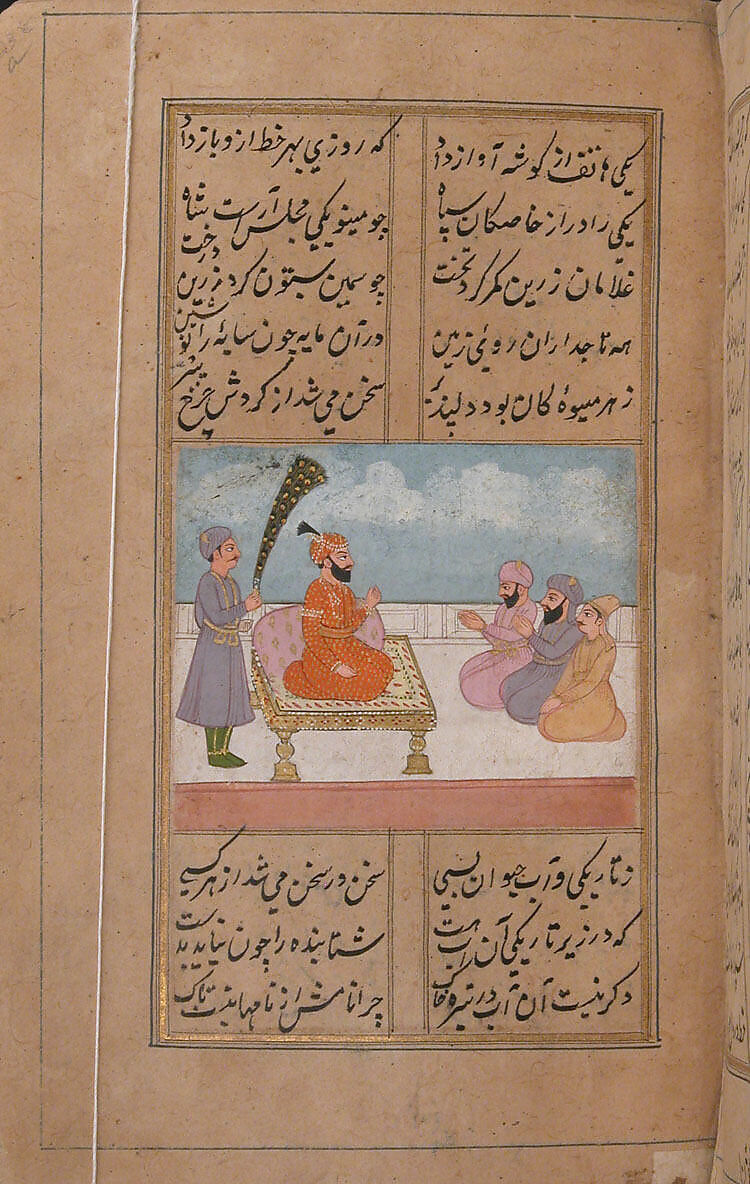 یکی هاتف از گوشه آواز داد که روزی بهر خط ازو باز داد
یکی را در از خاصکان سپاه چو مینو یکی مجلس آراست شاه
غلامان زرین کمر کرد تخت چو سیمین ستون کرد زرین درخت
همه تاجداران روی زمین در آن مایه چون سایۀ زانو نشین
ز هر میوۀ کان بود دلپذیر سخن می شد از کردش چرخ پیر
ز تاریکی و آب حیوان بسی سخن در سخن می شد از هر کسی
که در زیر تاریکی آن آب هست شتابنده را چون نیاید بدست
دکر نیست آن آب در تیره خاک چرا نامش از نامها نیست پاک